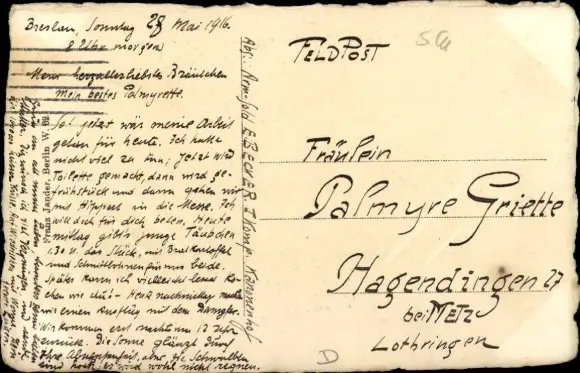 Breslau, Sonntag 28 Mai 1916.
8 Uhr morgen
Mein herzallerliebstes Bräutchen
Mein bestes Palmyrette.
So! jetzt wär meine Arbeit
getan für heute. Ich hatte
nicht viel zu tun; jetzt wird
Toilette gemacht, dann wird ge-
frühstückt und dann gehen wir
mit Hippert in die Messe. Ich
will dich für dich beten. Heute
mittag gibt's junge Täubchen
1.30 M. das Stück, mit Bratkartoffel
und Schnittbohnen für uns beide.
Später kann ich vielleicht so Ko-
chen wie du! - Heut nachmittag machen
wir einen Ausflug mit dem Dampfer.
Wir kommen erst nachts um 12 Uhr
zurück. Die Sonne glänzt
aber die Schwalben
sind hoch, es wird wohl nicht regnen.
Franz Jander, Berlin W. 62
Abs: Arm-Sold E. BECKER, 7 Komp.
FELDPOST
Fräulein
Palmyre Griette
Hagendingen 27
bei METZ
Lothringen
D